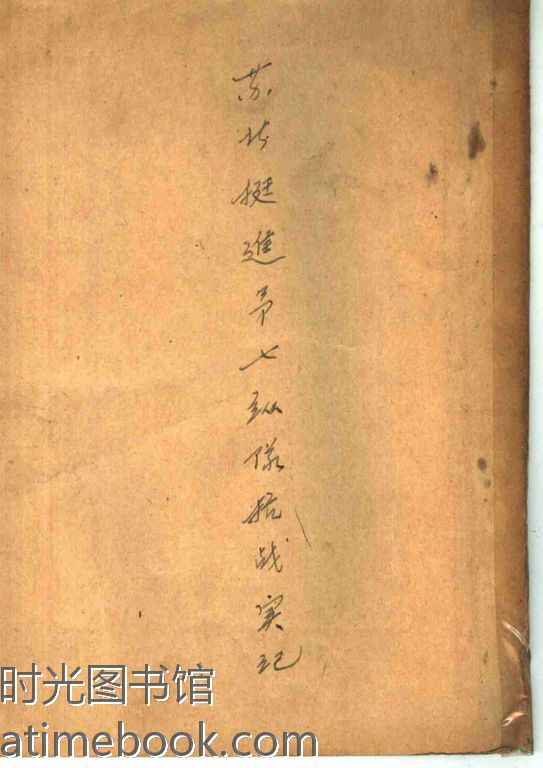 苏北挺進第七纵隊抗战实记
时光图书馆
atimebook.com